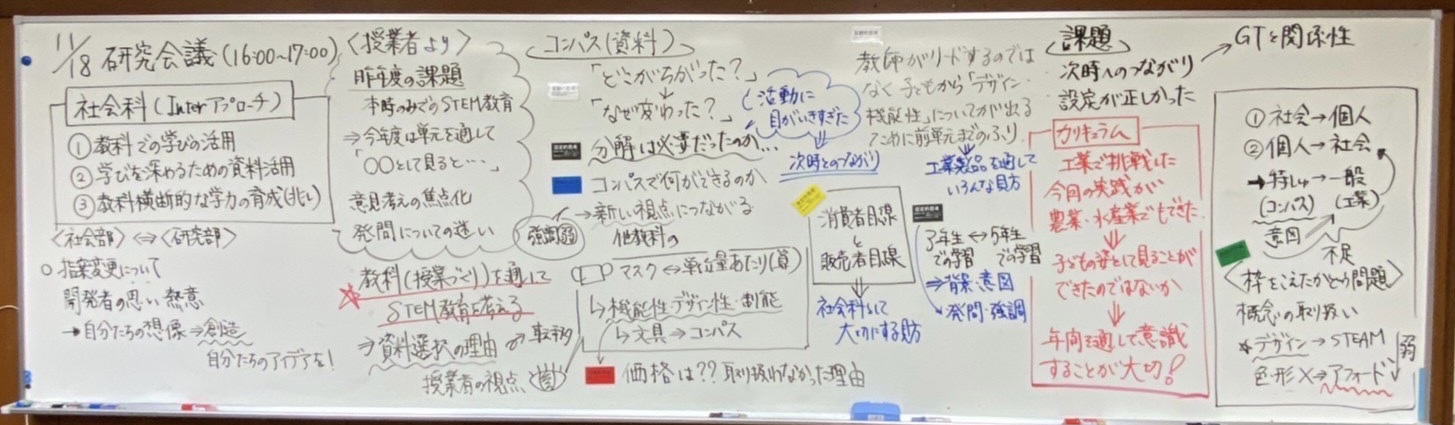 11/18 研究会議(16:00~17:00)
社会科(Interアプローチ)
①教科での学びの活用
②学びを深めるための資料活用
③教科横断的な学力の育成
〈社会部〉⇔〈研究部〉
○指案変更について
開発者の思い 熱意
→自分たちの想像⇒創造
自分たちのアイデアを!
〈授業者より〉
昨年度の課題
本時のみでらSTEM教育
⇒今年度は単元を通して
「○○として見ると…」
意見考えの焦点化
発問についての迷い
教科(授業づくり)を通して
STEM教育を考える
⇒資料選択の理由
授業者の視点
コンパス(資料)
「どこがちがった?」
「なぜ変わった?」
分解は必要だったのか…
コンパスで何ができるのか
→新しい視点につながる
強調弱
他教科の
マスク⇔単位量あたり(算)
↳機能性・デザイン性・
↳文具→コンパス
価格は??取り扱わなかった理由
活動に
目がいきすぎた
次時とのつながり
消費者目線
と
販売者目線
社会科として
大切にする見方
教師がリードするのでは
なく子どもから「デザイン・
機能性」についてが出る
ために前単元までのふり
工業製品を通して
いろんな見方
5年生
での学習
での学習
⇒背景・意図
⇒発問・強調
課題
次時へのつながり
設定が正しかった
カリキュラム
工業で挑戦した
今回の実践が
農業・水産業でもできた
子どもの姿として見ることが
できたのではないか
年間を通して意識
することが大切!
GTと関係性
①社会→個人
②個人→社会
→特しゅ→一般
(コンパス) (工業)
意図
不足
枠をこえたかどうか問題
概念の取り扱い
*デザイン→STEAM
色・形×→アフォード
弱